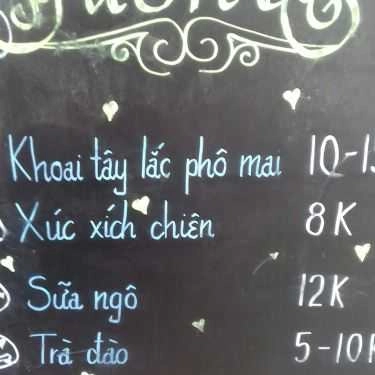 Khoai tây lắc phô mai 10-15
Xúc xích chiên 8K
Sữa ngô 12K
Trà đào 5-10K